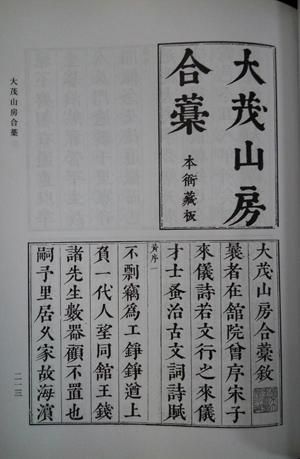 大茂山房
合藁
本衙藏板
大茂山房合藁敘
曩者在舘院曾序宋子
來儀詩若文行之來儀
才士蚤治古文詞詩賦
黃序一
不剽竊為工錚錚道上
負一代人望同舘王錢
諸先生數器顧不置也
嗣予里居久家故海濵
大茂山房合藁
二一三